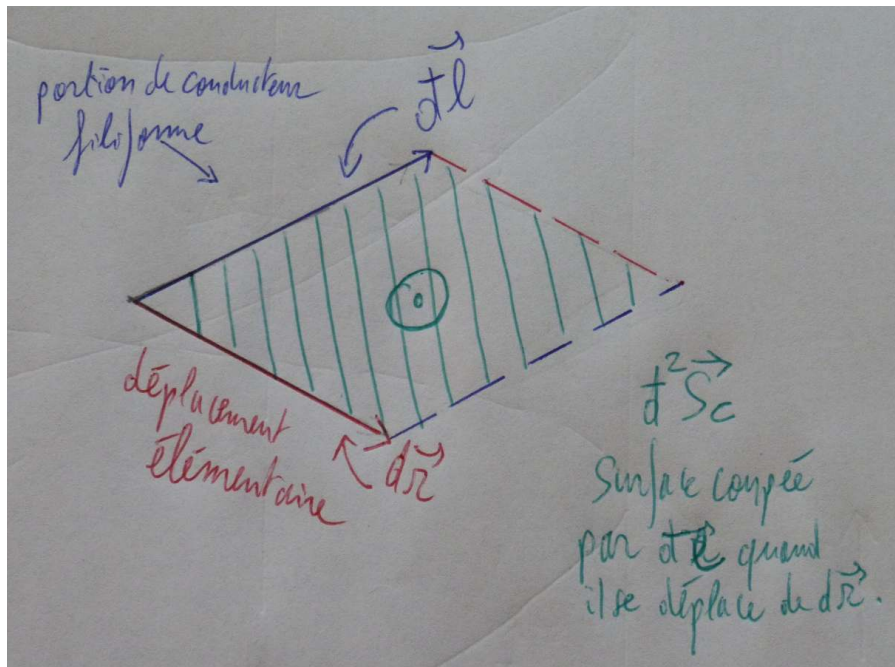 portion de conducteur
filiforme
đl⃗
déplacement
élémentaire
dr⃗
đ²S⃗c
Surface coupée
par đl⃗ quand
il se déplace de dr⃗.